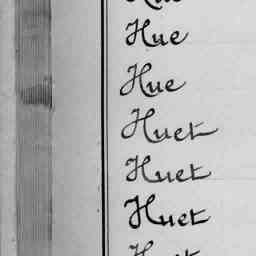 Hue
Hue
Hue
Huet
Huet
Huet